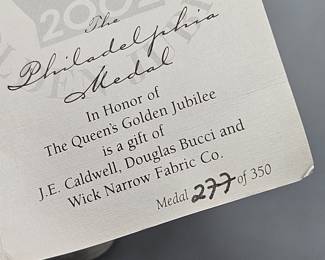 2002
The
Philadelphia
Medal
In Honor of
The Queen's Golden Jubilee
is a gift of
J.E. Caldwell, Douglas Bucci and
Wick Narrow Fabric Co.
Medal 277 of 350